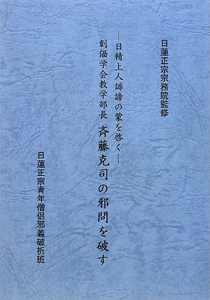 日蓮正宗宗務院監修
―日精上人誹謗の蒙を啓く―
創価学会教学部長 斉藤克司の邪問を破す
日蓮正宗青年僧侶邪義破折班